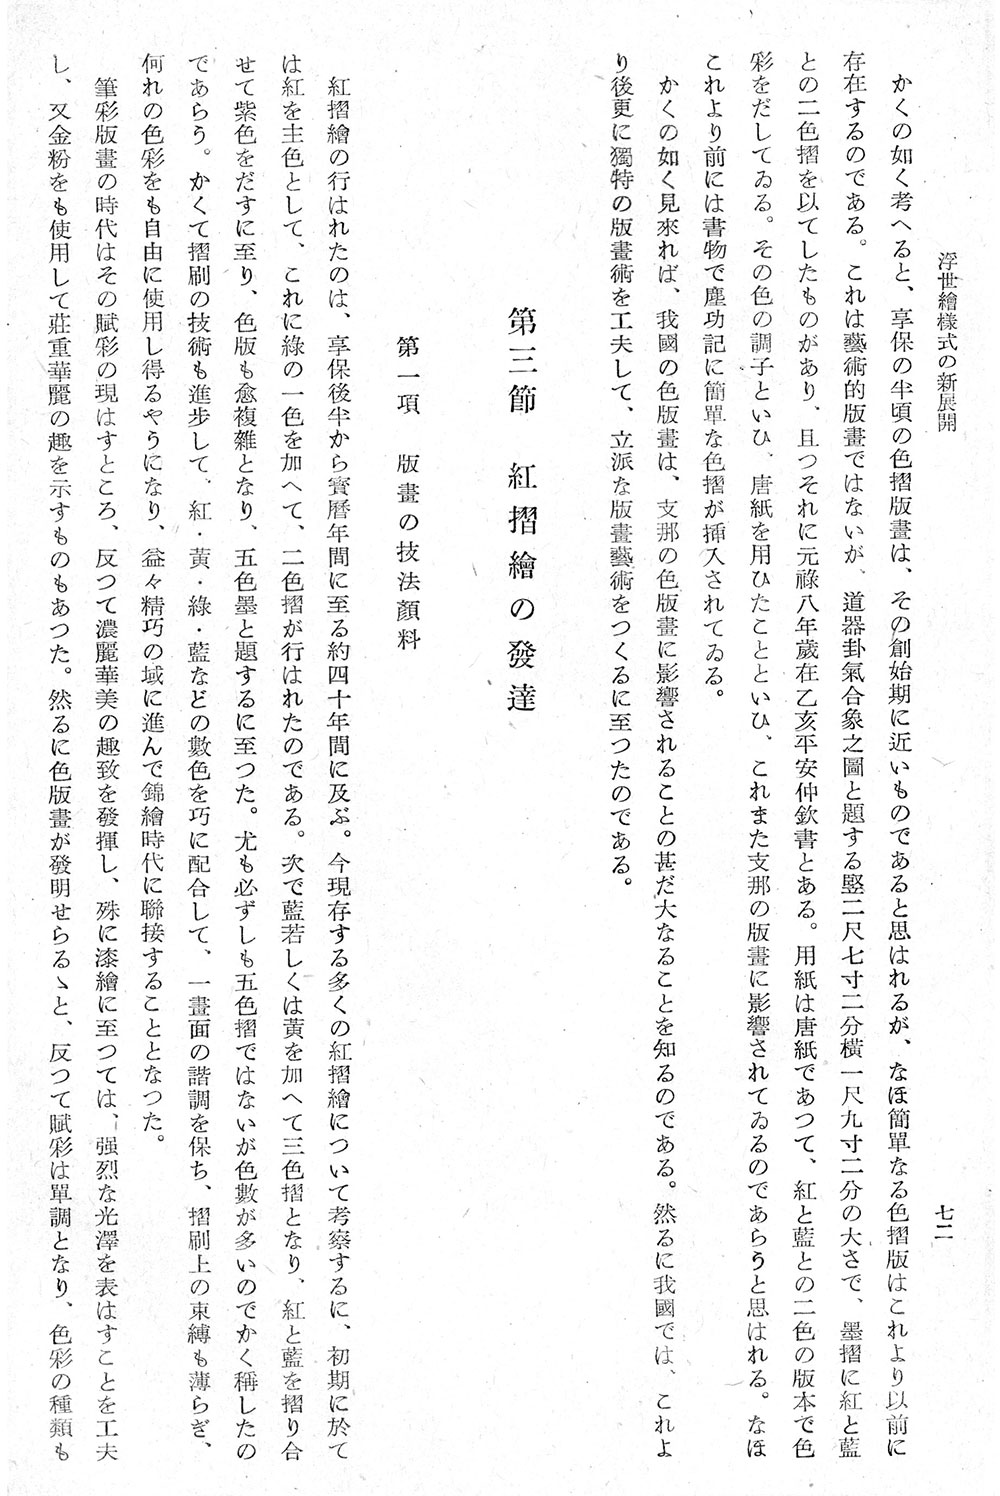 浮世繪樣式の新展開
七二
かくの如く考へると、享保の半頃の色摺版畫は、その創始期に近いものであると思はれるが、なほ簡單なる色摺版はこれより以前に
存在するのである。これは藝術的版畫ではないが、道器卦氣合象之圖と題する竪二尺七寸二分橫一尺九寸二分の大さで、墨摺に紅と藍
との二色摺を以てしたものがあり、且つそれに元祿八年歲在乙亥平安仲欽書とある。用紙は唐紙であつて、紅と藍との二色の版本で色
彩をだしてゐる。その色の調子といひ、唐紙を用ひたことといひ、これまた支那の版畫に影響されてゐるのであらうと思はれる。なほ
これより前には書物で塵功記に簡單な色摺が挿入されてゐる。
かくの如く見來れば、我國の色版畫は、支那の色版畫に影響されることの甚だ大なることを知るのである。然るに我國では、これよ
り後更に獨特の版畫術を工夫して、立派な版畫藝術をつくるに至つたのである。
第三節　紅摺繪の發達
第一項　版畫の技法顏料
紅摺繪の行はれたのは、享保後半から寶曆年間に至る約四十年間に及ぶ。今現存する多くの紅摺繪について考察するに、初期に於て
は紅を主色として、これに綠の一色を加へて、二色摺が行はれたのである。次で藍若しくは黃を加へて三色摺となり、紅と藍を摺り合
せて紫色をだすに至り、色版も愈複雜となり、五色墨と題するに至つた。尤も必ずしも五色摺ではないが色數が多いのでかく稱したの
であらう。かくて摺刷の技術も進步して、紅・黃・綠・藍などの數色を巧に配合して、一畫面の諧調を保ち、摺刷上の束縛も薄らぎ、
何れの色彩をも自由に使用し得るやうになり、益々精巧の域に進んで錦繪時代に聯接することとなつた。
筆彩版畫の時代はその賦彩の現はすところ、反つて濃麗華美の趣致を發揮し、殊に漆繪に至つては、强烈な光澤を表はすことを工夫
し、又金粉をも使用して莊重華麗の趣を示すものもあつた。然るに色版畫が發明せらるゝと、反つて賦彩は單調となり、色彩の種類も